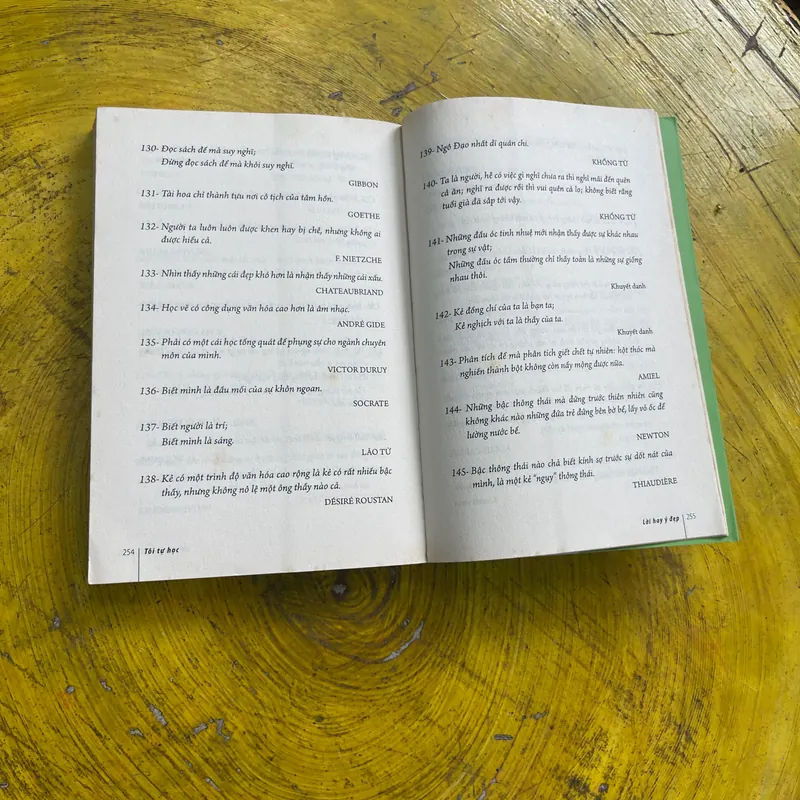 130- Đọc sách để mà suy nghĩ;
Đừng đọc sách để mà khỏi suy nghĩ.
GIBBON
131- Tài hoa chỉ thành tựu nơi cô tịch của tâm hồn.
GOETHE
132- Người ta luôn luôn được khen hay bị chê, nhưng không ai
được hiểu cả.
F. NIETZCHE
133- Nhìn thấy những cái đẹp khó hơn là nhận thấy những cái xấu.
CHATEAUBRIAND
134- Học vẽ có công dụng văn hóa cao hơn là âm nhạc.
ANDRÉ GIDE
135- Phải có một cái học tổng quát để phụng sự cho ngành chuyên
môn của mình.
VICTOR DURUY
136- Biết mình là đầu mối của sự khôn ngoan.
SOCRATE
137- Biết người là trí;
Biết mình là sáng.
LÃO TỬ
138- Kẻ có một trình độ văn hóa cao rộng là kẻ có rất nhiều bậc
thầy, nhưng không nô lệ một ông thầy nào cả.
DÉSIRÉ ROUSTAN
254 Tôi tự học
139- Ngô Đạo nhất dĩ quán chi.
KHỔNG TỬ
140- Ta là người, hễ có việc gì nghĩ chưa ra thì nghĩ mãi đến quên
cả ăn; nghĩ ra được rồi thì vui quên cả lo; không biết rằng
tuổi già đã sắp tới vậy.
KHỔNG TỬ
141- Những đầu óc tinh nhuệ mới nhận thấy được sự khác nhau
trong sự vật;
Những đầu óc tầm thường chỉ thấy toàn là những sự giống
nhau thôi.
Khuyết danh
142- Kẻ đồng chí của ta là bạn ta;
Kẻ nghịch với ta là thầy của ta.
Khuyết danh
143- Phân tích để mà phân tích giết chết tự nhiên: hột thóc mà
nghiền thành bột không còn nẩy mộng được nữa.
AMIEL
144- Những bậc thông thái mà đứng trước thiên nhiên cũng
không khác nào những đứa trẻ đứng bên bờ bể, lấy vỏ ốc để
lường nước bể.
NEWTON
145- Bậc thông thái nào chả biết kính sợ trước sự dốt nát của
mình, là một kẻ “ngụy” thông thái.
THIAUDIÈRE
Lời hay ý đẹp 255